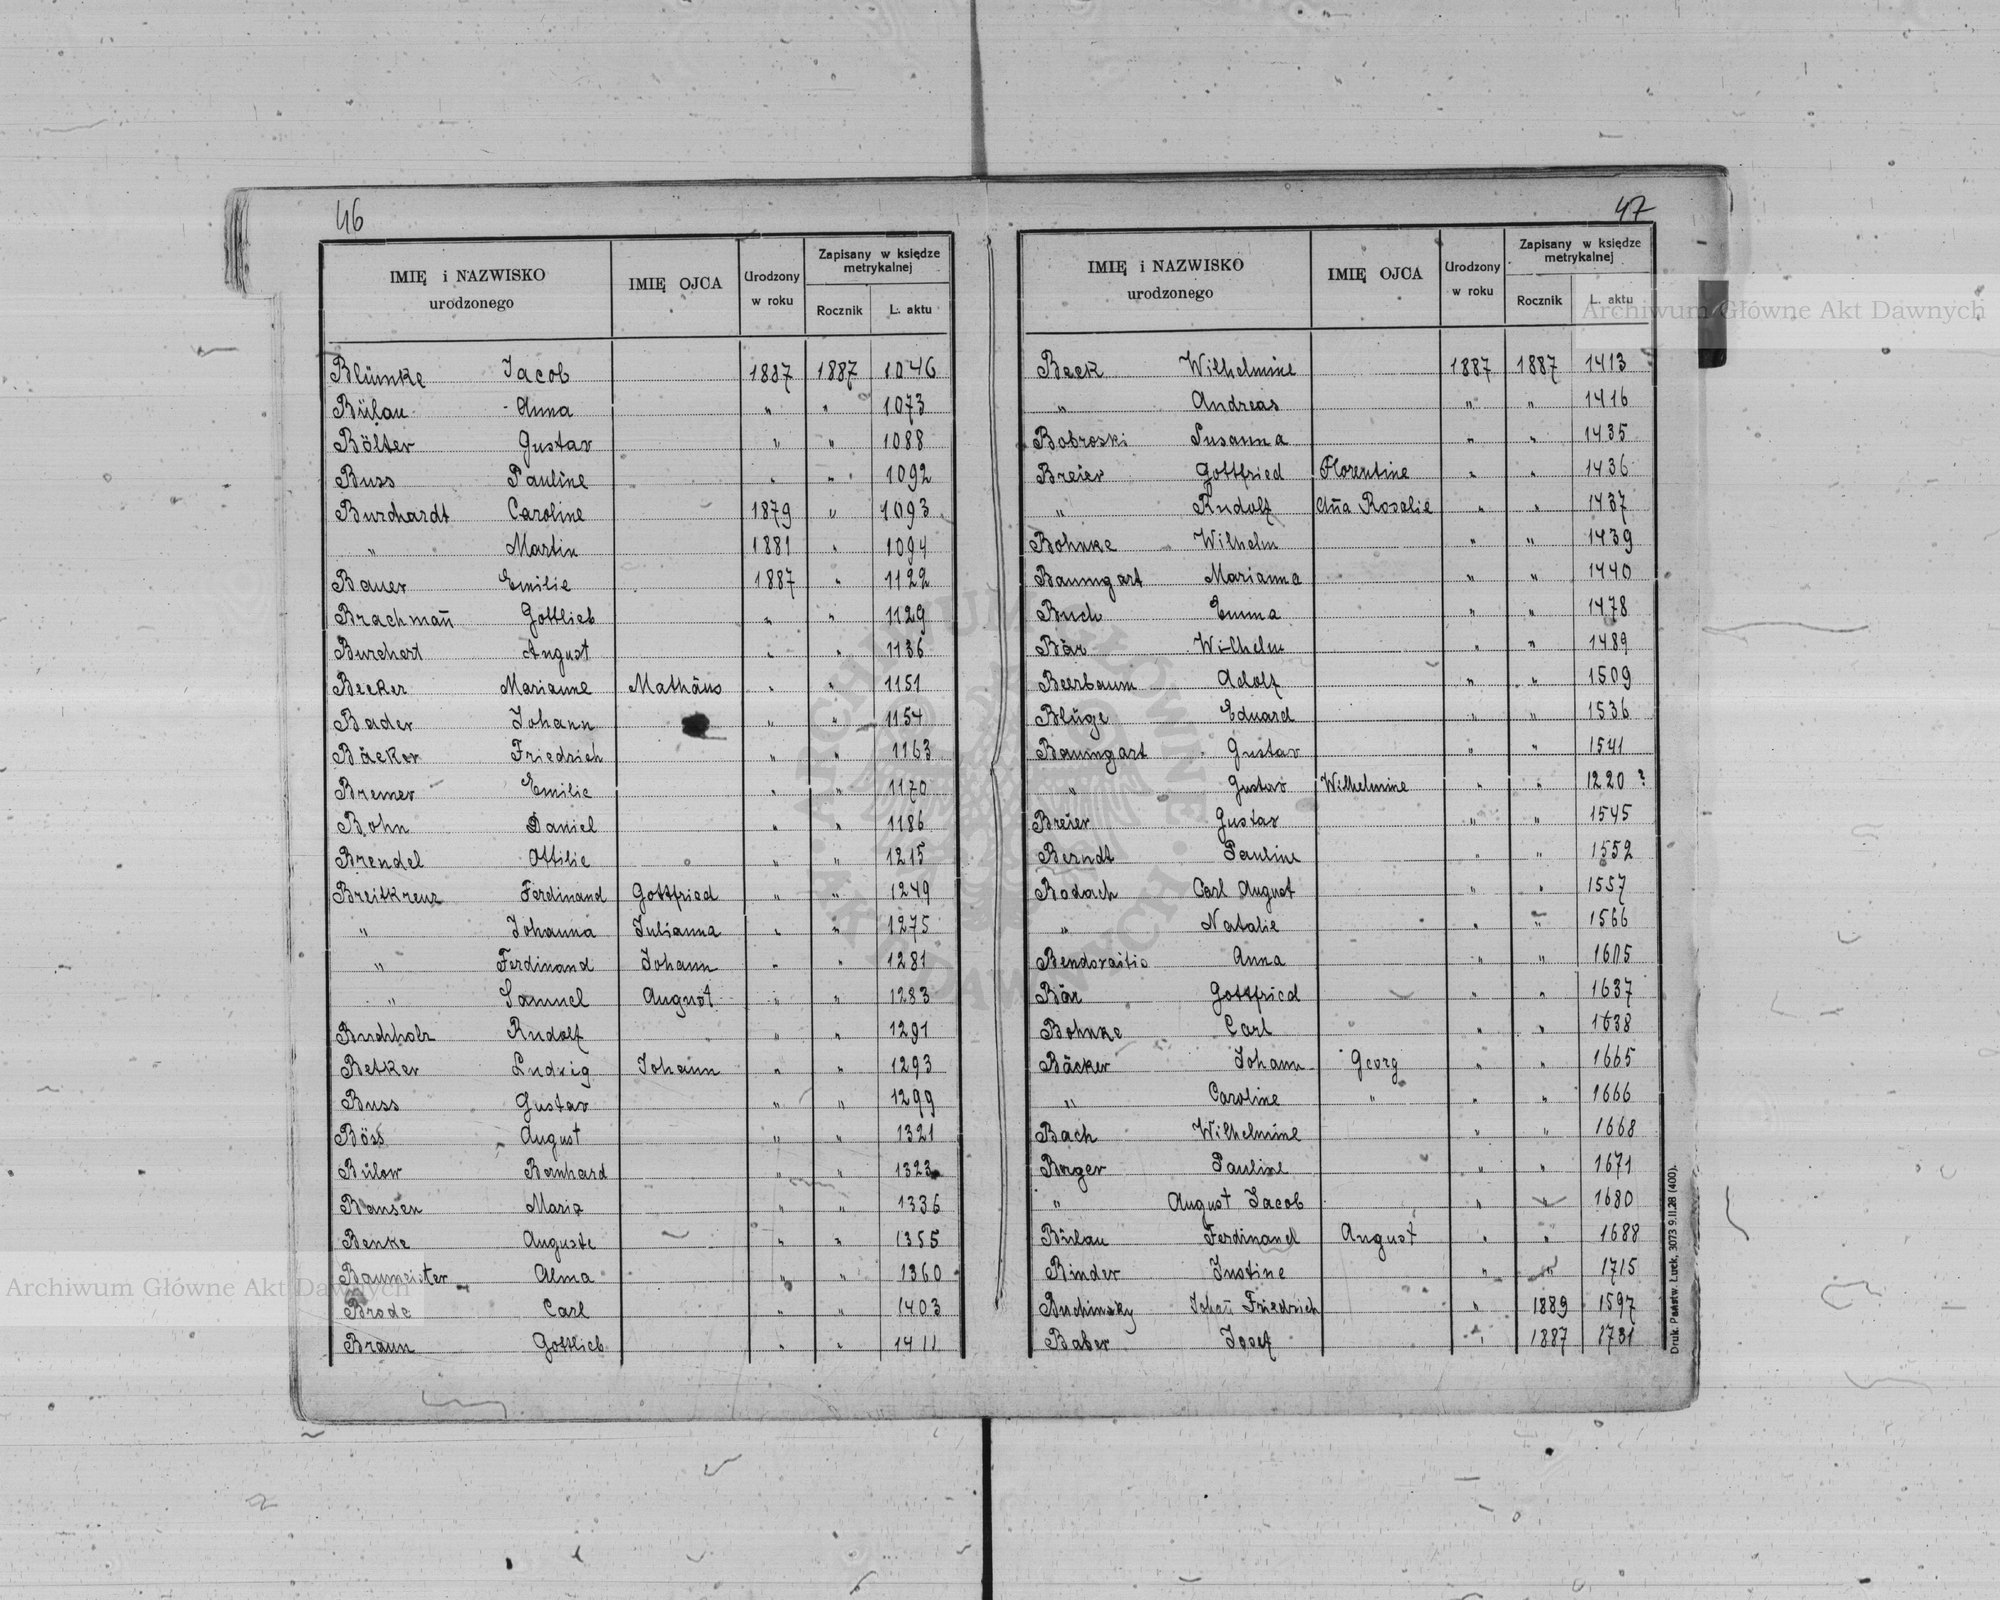 46
IMIĘ i NAZWISKO urodzonego IMIĘ OJCA Urodzony w roku Zapisany w księdze metrykalnej Rocznik L. aktu
Blümke Jacob 1887 1887 1046
Bülau Anna " " 1073
Bölter Gustav " " 1088
Buss Pauline " " 1092
Burchardt Caroline 1879 " 1093
" Martin 1881 " 1094
Bauer Emilie 1887 " 1122
Brachmañ Gottlieb " " 1129
Burchert August " " 1136
Becker Marianne Mathäus " " 1151
Bader Johann " " 1154
Bäcker Friedrich " " 1163
Bremer Emilie " " 1170
Bohn Daniel " " 1186
Brendel Ottilie " " 1215
Breitkreuz Ferdinand Gottfried " " 1249
" Johanna Julianna " " 1275
" Ferdinand Johann " " 1281
" Samuel August " " 1283
Buchholz Rudolf " " 1291
Betker Ludwig Johann " " 1293
Buss Gustav " " 1299
Böss August " " 1321
Bülow Bernhard " " 1323
Bansen Maria " " 1336
Benke Auguste " " 1355
Baumeister Alma " " 1360
Brode Carl " " 1403
Braun Gottlieb " " 1411
47
IMIĘ i NAZWISKO urodzonego IMIĘ OJCA Urodzony w roku Zapisany w księdze metrykalnej Rocznik L. aktu
Beck Wilhelmine 1887 1887 1413
" Andreas " " 1416
Bobroski Susanna " " 1435
Breier Gottfried Florentine " " 1436
" Rudolf Aña Rosalie " " 1437
Bohnke Wilhelm " " 1439
Baumgart Marianna " " 1440
Buch Emma " " 1478
Bär Wilhelm " " 1489
Beerbaum Adolf " " 1509
Blüge Eduard " " 1536
Baumgart Gustav " " 1541
" Gustav Wilhelmine " " 1220 ?
Breier Gustav " " 1545
Berndt Pauline " " 1552
Rodach Carl August " " 1557
" Natalie " " 1566
Anna " " 1605
Bär Gottfried " " 1637
Bohnke Carl " " 1638
Bäcker Johann Georg " " 1665
" Caroline " " " 1666
Bach Wilhelmine " " 1668
Berger Pauline " " 1671
" August Jacob " " 1680
Bülau Ferdinand August " " 1688
Binder Justine " " 1715
Buchinsky Johañ Friedrich " 1889 1597
Baber Josef " 1887 1731
Druk. Państw. Łuck, 3073 9.II.28 (400).
Archiwum Główne Akt Dawnych
Archiwum Główne Akt Dawnych
ARCHIWUM GŁÓWNE AKT DAWNYCH